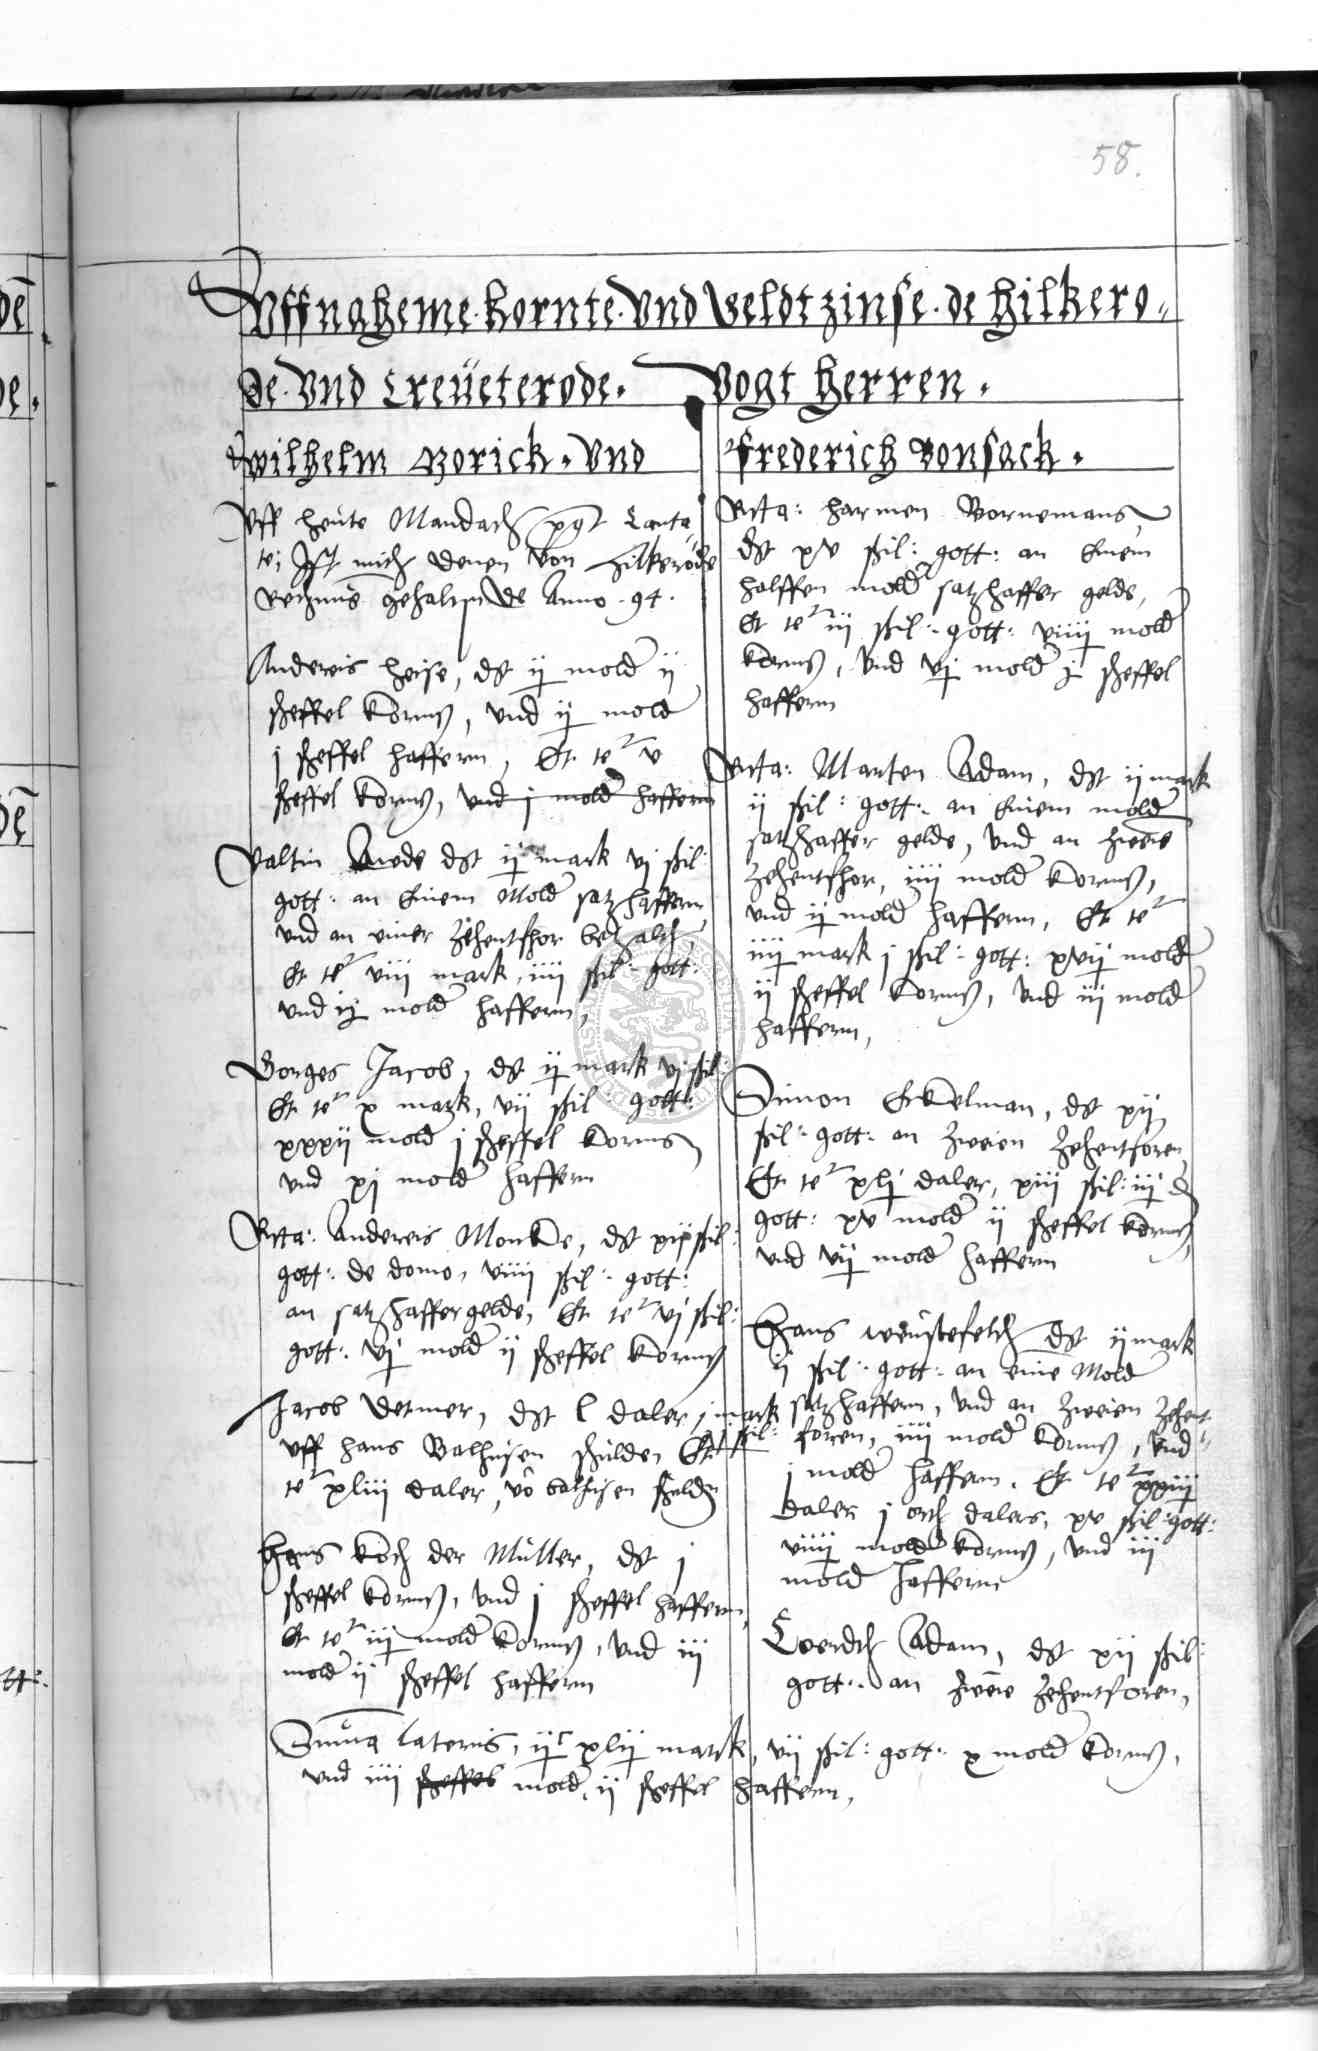 58.
Uffnaheme kornte und Veldt zinse de hilkero-
de und Creüeterode. Vogt herren.
Wilhelm Borick und
Frederich Bonsack.
Uff heute Mandach post Canta
te, Ist mich denen von Hilkerode
gehalten de Anno 94.
Andereis heise, dt ij mold ij
scheffel korns, und ij mold
j scheffel haffern, Et tr v
scheffel korns, und j mold haffern
Valtin dt ij mark vj schil:
gott: an einem Mold satzhaffern
und an einer Zehentfhor bezalt,
Et tr viij mark, iiij schil: gott:
und ij mold haffern,
Borges Jacob, dt ij mark vj schil:
Et tr x mark, vij schil: gott:
xxxij mold j scheffel korns
und xj mold haffern
Rcta: Andereis Monke, dt xij schil:
gott: de domo, viiij schil: gott:
an satzhaffergelde, Et tr vj schil:
gott: vj mold ij scheffel korns
Jacob Detmer, dt l daler j mark
schil:
uff hans Balhusen schulden Et
tr xliij daler, vô balhusen schuldn
Hans Koch der Müller, dt j
scheffel korns, und j scheffel haffern,
Et tr iij mold korns, und iij
mold ij scheffel haffern
Rcta: harmen Bornemans,
dt xv schil: gott: an einem
halffen mold satzhaffer gelde,
Et tr iij schil: gott: viiij mold
korns, und vj mold j scheffel
haffern
Rcta: Marten Adam, dt ij mark
ij schil: gott: an einem mold
satzhaffer gelde, und an zweie
Zehentfhor, iiij mold korns,
und ij mold haffern, Et tr
iiij mark j schil: gott: xvij mold
ij scheffel korns, und iij mold
haffern,
Simon Eckelman, dt xij
schil: gott: an zweien Zehentforen
Et tr xlj daler, xiij schil: iij d
gott: xv mold ij scheffel korns,
und vij mold haffern
Hans weustefeldt dt ij mark
ij schil: gott: an eine Mold
satzhaffern, und an zweien Zehent
foren, iiij mold korns, und
j mold haffern. Et tr xxiij
daler j ort dalers, xv schil: gott:
viiij mold korns, und iij
mold hafferne
Coerdt Adam, dt xij schil:
gott: an zweie Zehentforen,
Suma lateris, ijc xlij mark, vij schil: gott: x mold korns,
und iiij scheffel mold, ij scheffel haffern,